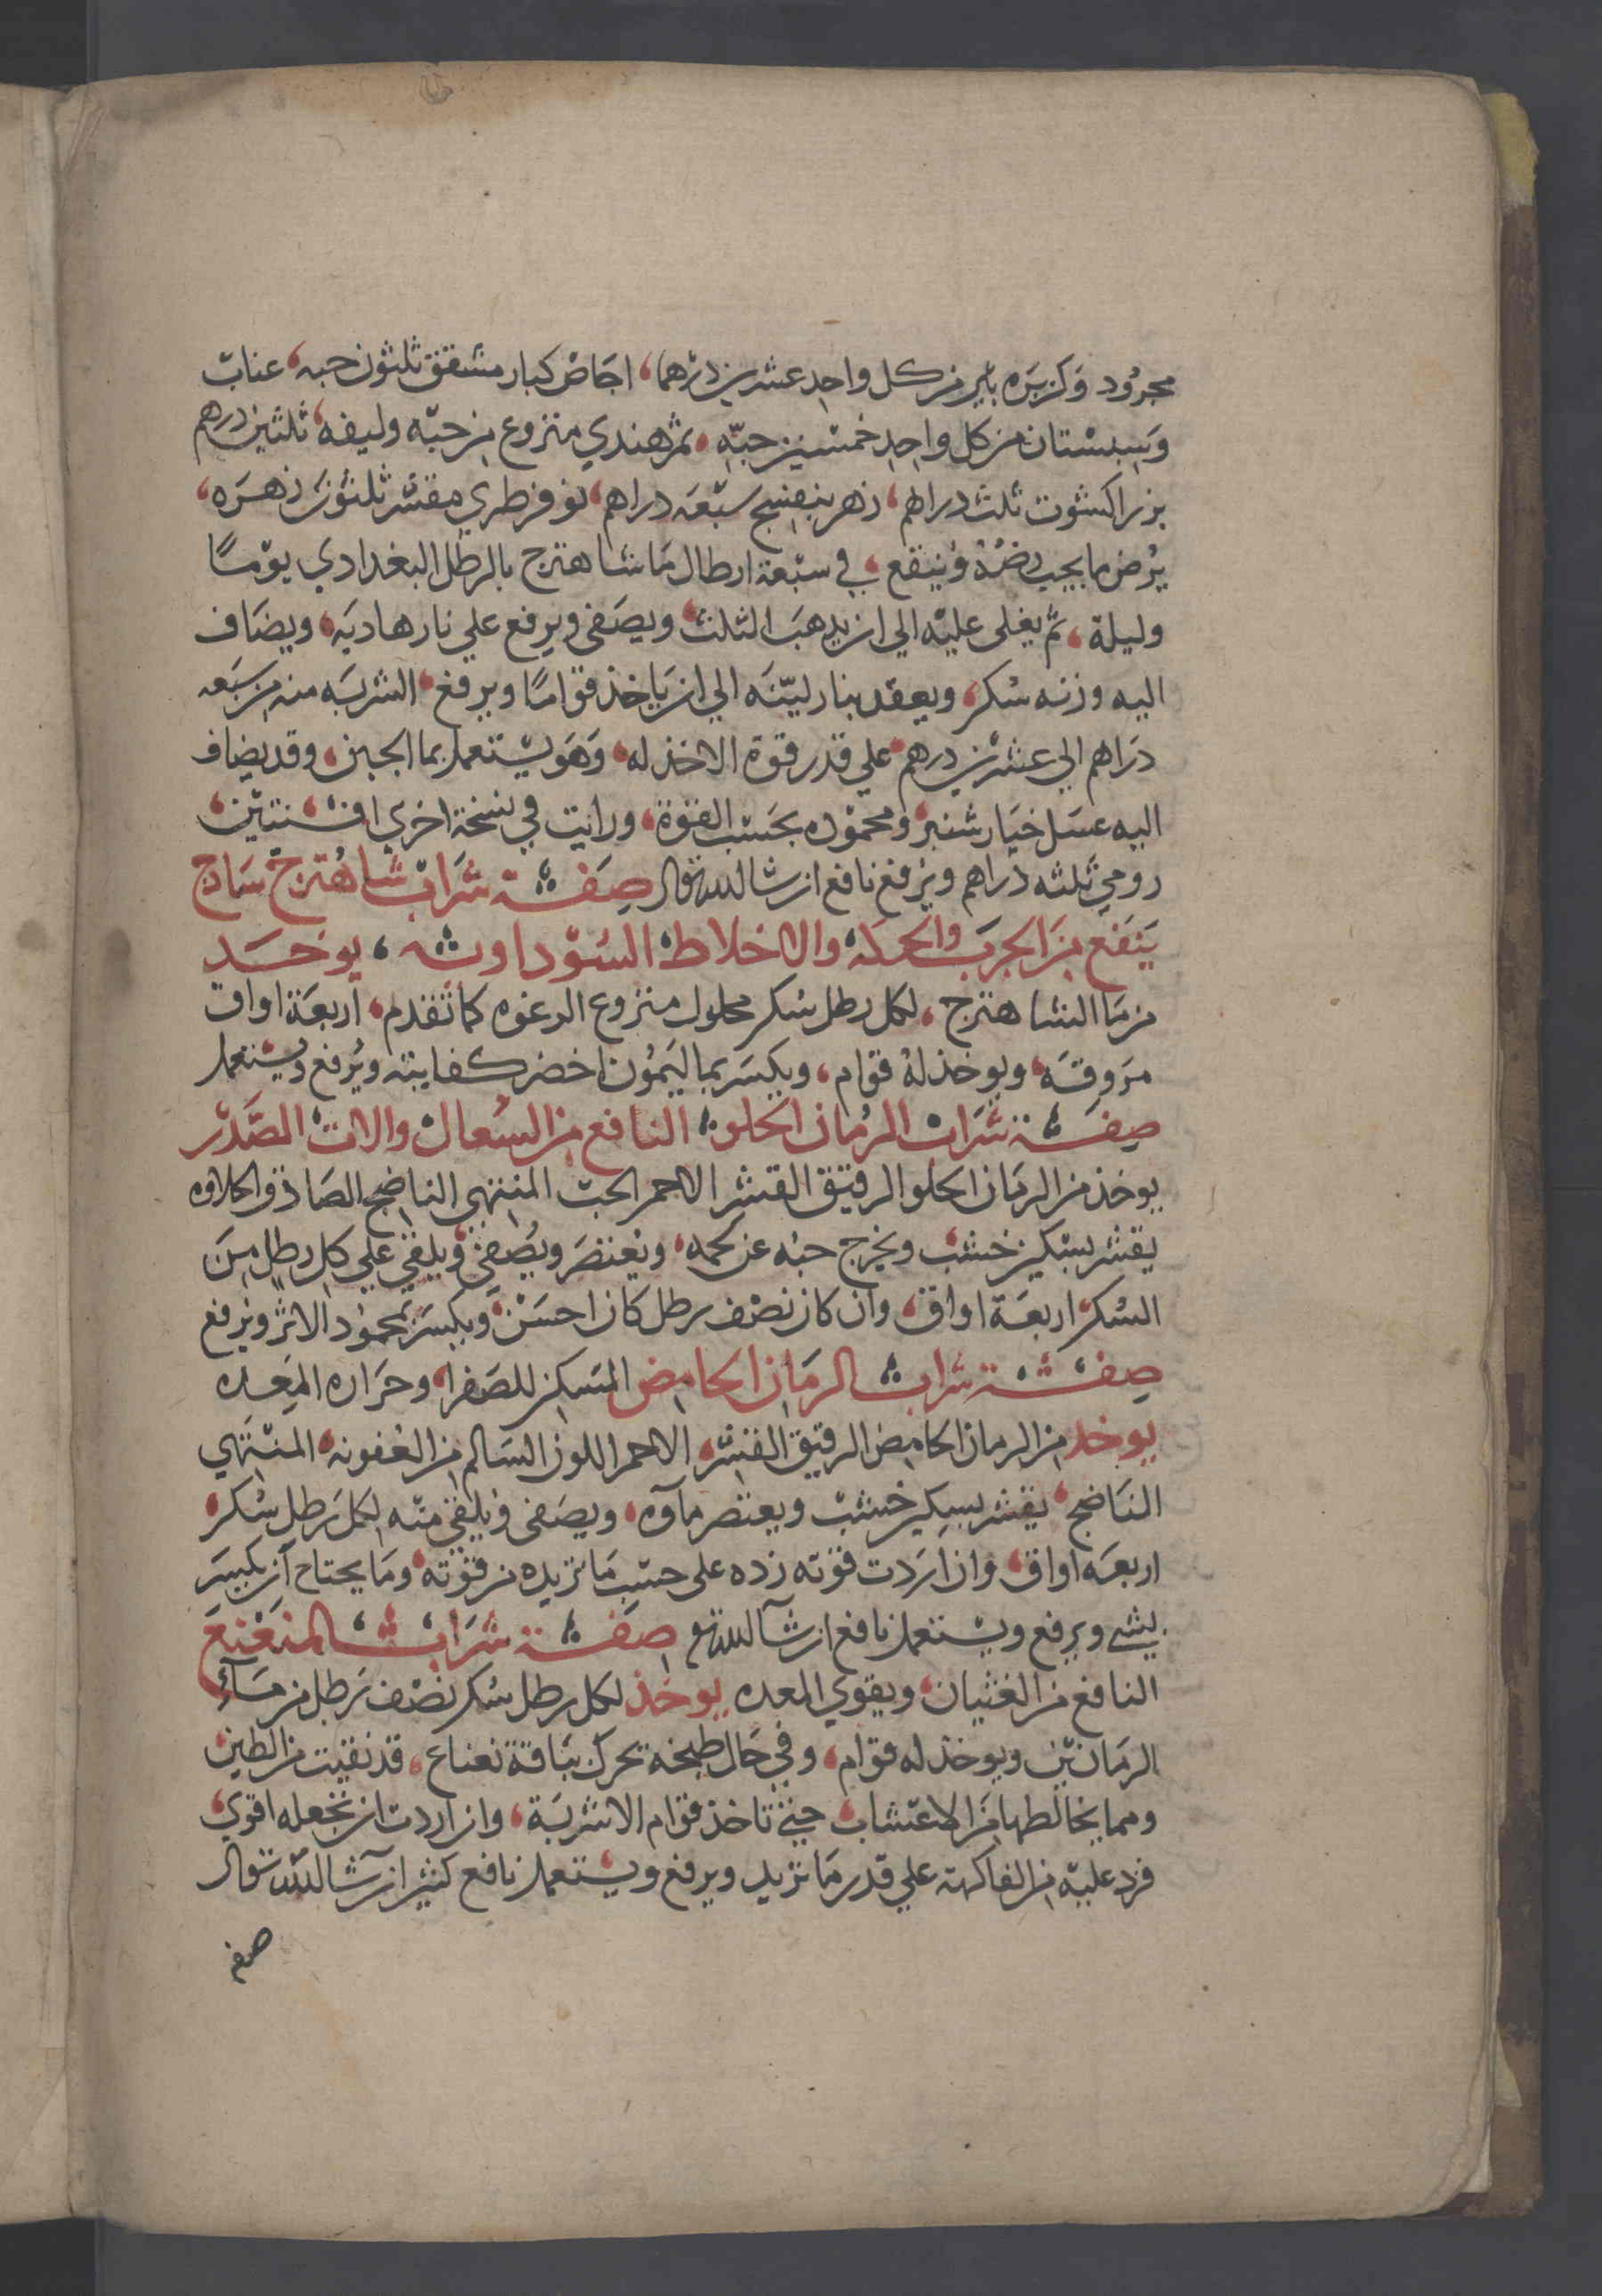 مجرود وكزبره بير من كل واحد عشرين درهما، اجاص كبار مشقق ثلثون حبه، عناب
وسبستان من كل واحد خمسين حبه، تمر هندي منزوع من حبه وليفه، ثلثين درهم
بزر اكشوت ثلث دراهم، زهر بنفسج سبعه دراهم، نوفر طري مقشر ثلثون زهره،
يرض ما يجب رضه وينقع، في سبعة ارطال ما شاهترج بالرطل البغدادي يومًا
وليلة، ثم يغلى عليه الي ان يدهب الثلث، ويصفى ويرفع علي نار هاديه، ويضاف
اليه وزنه سكر، ويعقد بنار لينه الي ان ياخذ قوامًا ويرفع، الشربه منه من سبعه
دراهم الي عشرين درهم، علي قدر قوة الاخذ له، وهو يستعمل بما الجبن، وقد يضاف
اليه عسل خيار شنبر، ومحموده بحسب القوة، ورايت في نسخة اخري افسنتين،
رومي ثلثه دراهم ويرفع نافع ان شا الله تعالى صفة شراب شاهترج ساج
ينفع من الجرب والحكه والاخلاط السوداويه، يوخد
من ما الشاهترج، لكل رطل سكر محلول منزوع الرغوه كما تقدم، اربعة اواق
مروقه، ويوخذ له قوام، ويكسر بما ليمون اخضر كفايته ويرفع ويستعمل
صفة شراب الرمان الحلو، النافع من السعال والات الصدر
يوخذ من الرمان الحلو الرقيق القشر الاحمر الحب المنتهي الناضج الصادق الحلاوه
يقشر بسكين خشب ويخرج حبه عن لحمه، ويعتصر ويصفى ويلقي علي كل رطل من
السكر اربعة اواق، وان كان نصف رطل كان احسن، ويكسر بحموده الاثر ويرفع
صفة شراب الرمان الحامض المسكن للصفرا، وحراره المعده
يوخد من الرمان الحامض الرقيق القشر، الاحمر اللون السالم من العفونه، المنتهي
الناضج، يقشر بسكين خشب ويعتصر مآوه، ويصفى ويلقي منه لكل رطل سكر،
اربعه اواق، وان اردت قوته زده على حسب ما تريده من قوته، وما يحتاج ان يكسر
بشي ويرفع ويستعمل نافع ان شآ الله تع صفة شراب المنعنع
النافع من الغثيان، ويقوي المعده يوخذ لكل رطل سكر نصف رطل من مآء
الرمانين ويوخذ له قوام، وفي حال طبخه تحرك بباقة نعناع، قد نقيت من الطين،
ومما يخالطها من الاعشاب، حيتي تاخذ قوام الاشربة، وان اردت ان تجعله اقوي،
فزد عليه من الفاكهة علي قدر ما تريد ويرفع ويستعمل نافع كثير ان شآ الله تعالى
صفة